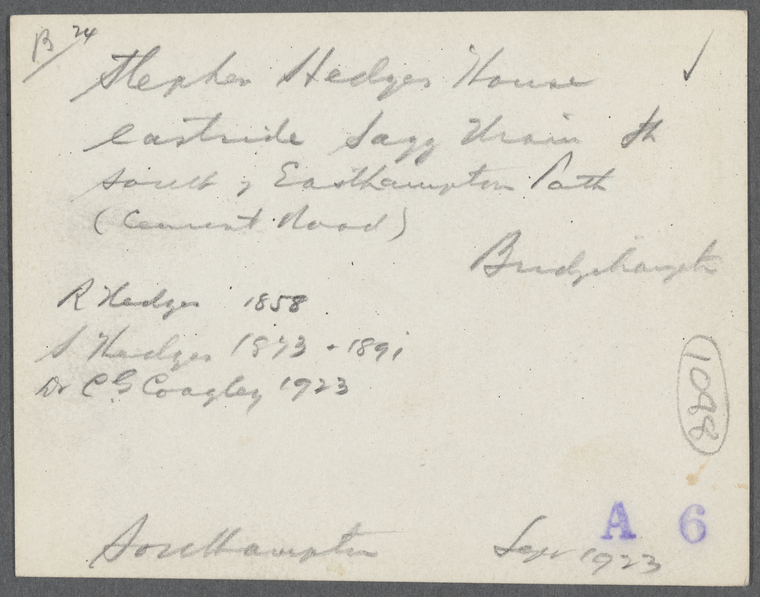 B/24
Stephen Hedges House
Eastside Sagg Main St
South of Easthampton Path
(Cement Road)
Bridgehampton
R Hedges 1858
S Hedges 1873 - 1891
Dr C G Coagley 1923
1098
Southampton Sept 1923
A 6